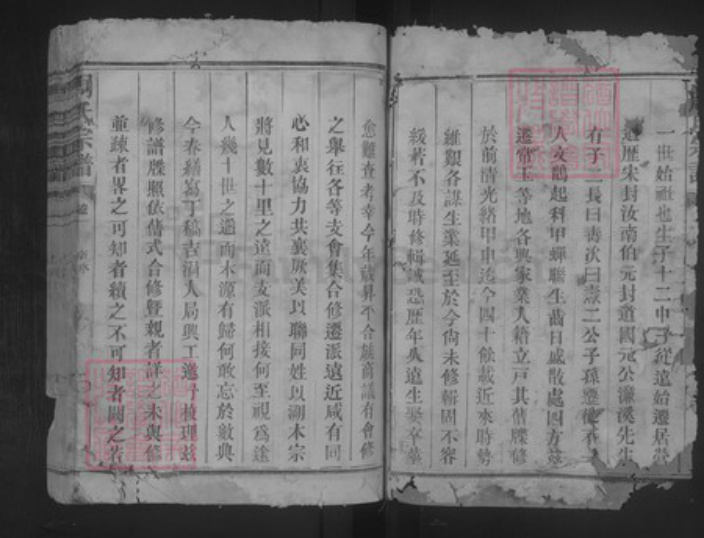 一世始祖也生子十二中子從遠始遷居營
道歷宋封汝南伯元封道國元公濂溪先生
有子二長曰壽次曰燾二公子孫
人文鵲起科甲蟬聯生齒日盛散處四方茲
遷常玉等地各興家業入籍立戶其舊牒修
於前清光緒甲申迄今四十餘載近來時勢
維艱各謀生業延至於今尚未修輯固不容
緩若不及時修輯誠恐歷年久遠生娶卒葬
愈難查考幸今年歲昇平合族商議有會修
之舉往各等支會集合修遷派遠近咸有同
心和衷協力共襄厥美以聯同姓以溯木宗
將見數十里之遠而支派相接何至視為途
人幾十世之遙而木源有歸何敢忘於數典
今春繕寫丁稿吉涓人局興工遜才梭理茲
修譜牒照依舊式合修暨親者詳之未與修
並疎者畧之可知者續之不可知者闕之若
周氏宗譜